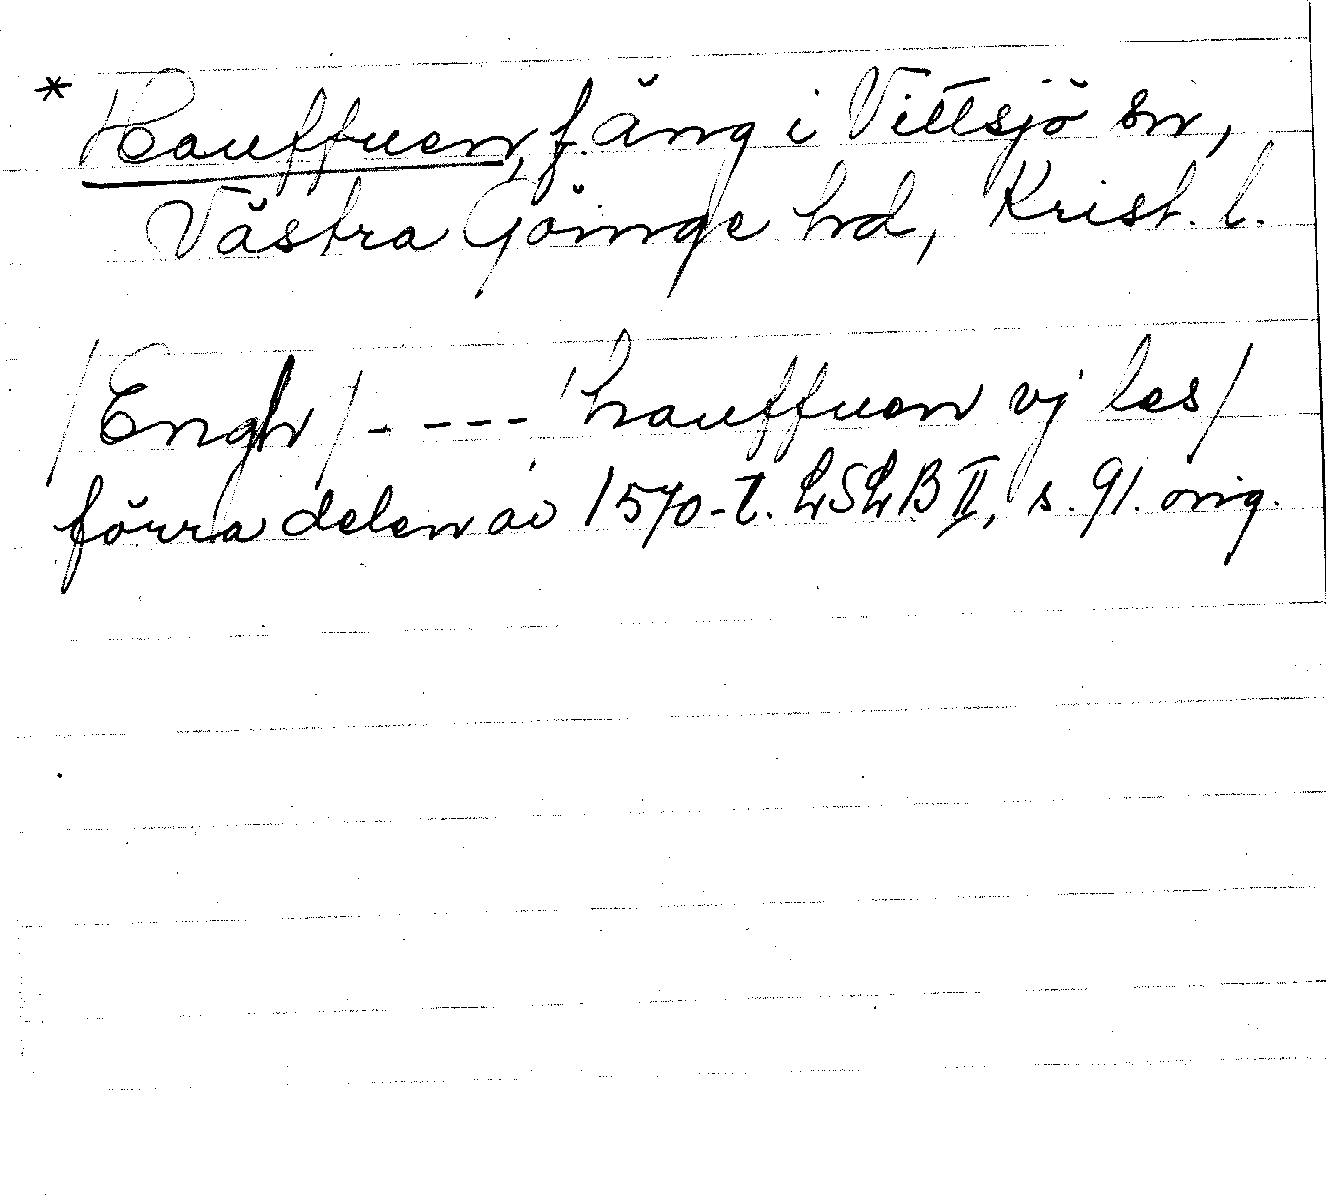 * Hauffuen, f. äng i Vittsjö sn,
Västra Göinge hd, Krist. l.
/Engh/ - - - - hauffuen vj les/
förra delen av 1570-t. LSLB II, s. 91. orig.